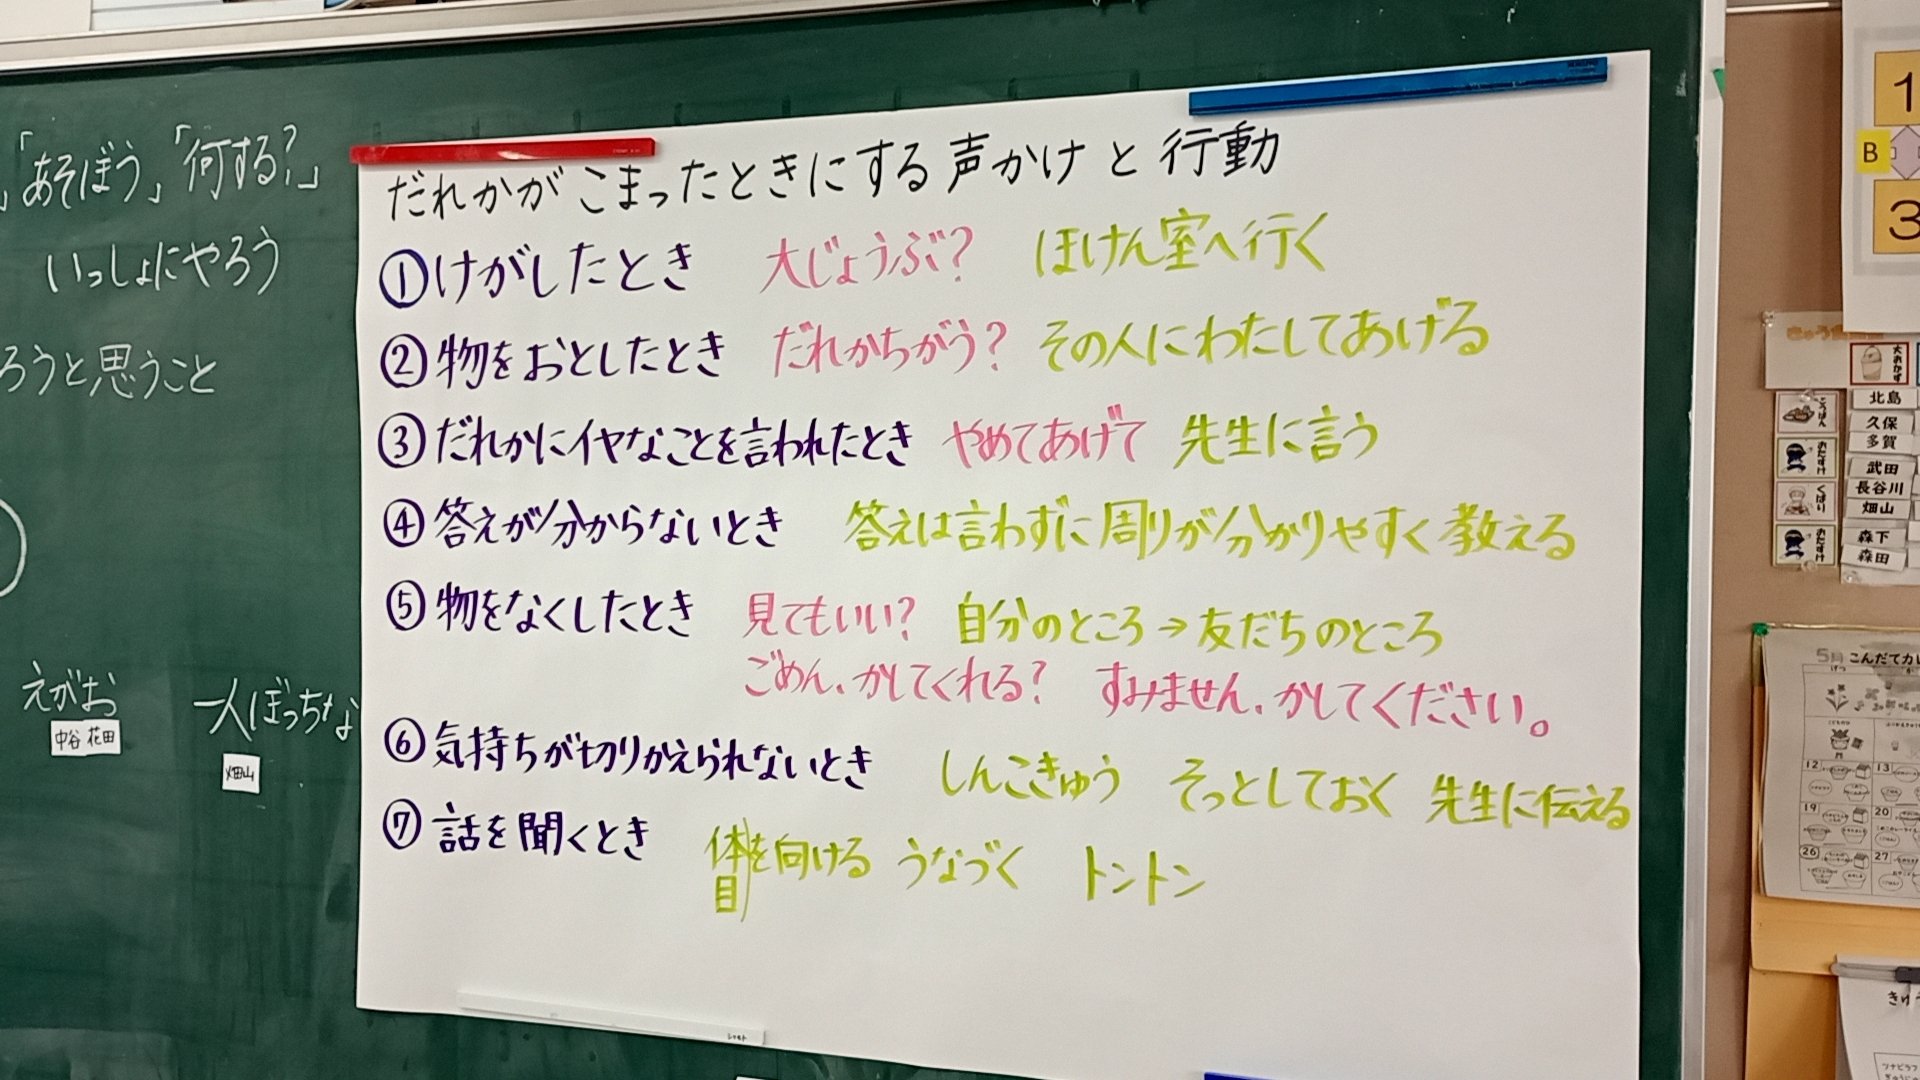 「あそぼう」「何する?」
いっしょにやろう
ろうと思うこと
えがお
中谷 花田
一人ぼっちな
畑山
だれかがこまったときにする声かけと行動
①けがしたとき 大じょうぶ? ほけん室へ行く
②物をおとしたとき だれかちがう? その人にわたしてあげる
③だれかにイヤなことを言われたとき やめてあげて 先生に言う
④答えが分からないとき 答えは言わずに周りが分かりやすく教える
⑤物をなくしたとき 見てもいい? 自分のところ→友だちのところ
ごめん、かしてくれる? すみません、かしてください。
⑥気持ちが切りかえられないとき しんこきゅう そっとしておく 先生に伝える
⑦話を聞くとき 体を向ける うなづく トントン
目
1
B
3
大おかず
北島
久保
多賀
おたすけ
武田
くばり
長谷川
畑山
おたすけ
森下
森田
5月 こんだてカレ
12 13
19 20
26 27
きゅう